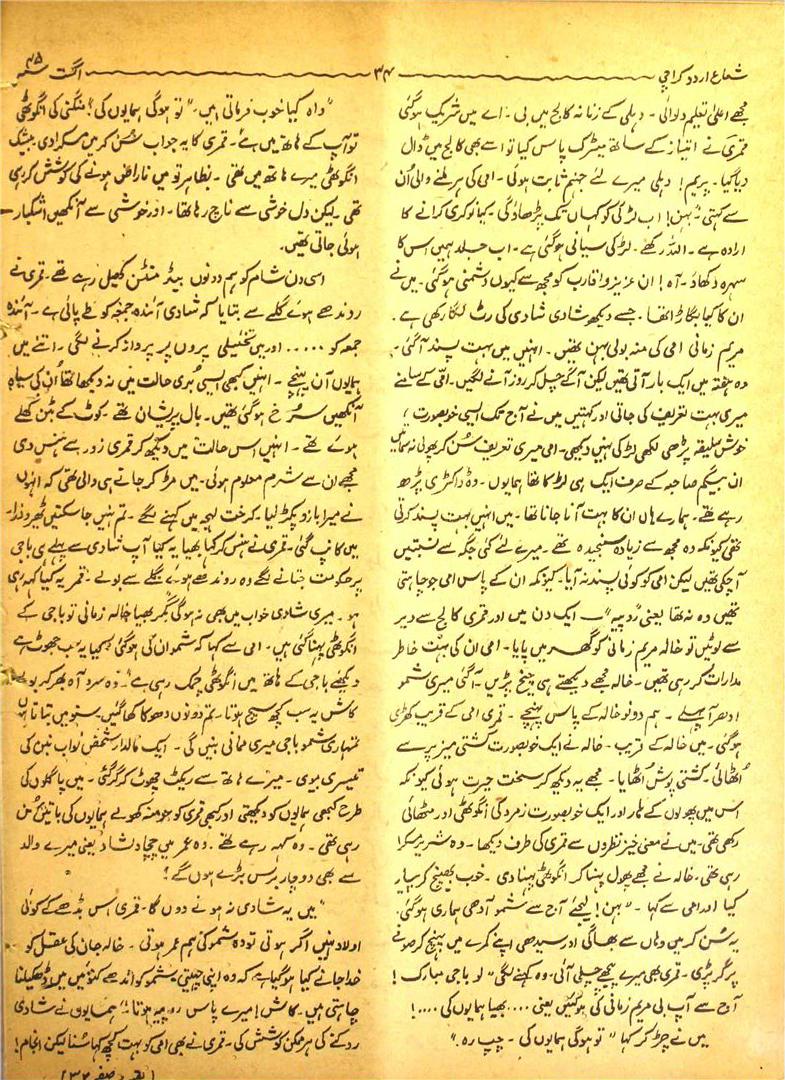 شعاع اردو کراچی
۳۴
اگست ۴۵ء
مجھے اعلیٰ تعلیم دلوائی ۔ دہلی کے زنانہ کالج میں بی ۔ اے میں شریک ہو گئی
قمری نے امتیاز کے ساتھ میٹرک پاس کیا تو اسے بھی کالج میں ڈال
دیا گیا ۔ پریم ! دہلی میرے لئے جہنم ثابت ہوئی ۔ امی کی ہر ملنے والی اُن
سے کہتی " بہن ! اب لڑکی کو کہاں تک پڑھاؤ گی ۔ کیا نوکری کرانے کا
ارادہ ہے ۔ اللہ رکھے ۔ لڑکی سیانی ہو گئی ہے ۔ اب جلد ہمیں اس کا
سہرہ دکھاؤ ۔ آہ ! ان عزیز و اقارب کو مجھ سے کیوں دشمنی ہو گئی ۔ میں نے
ان کا کیا بگاڑا تھا ۔ جسے دیکھو شادی شادی کی رٹ لگا رکھی ہے ۔
مریم زمانی امی کی منہ بولی بہن تھیں ۔ انہیں میں بہت پسند آ گئی ۔
وہ ہفتہ میں ایک بار آتی تھیں لیکن آگے چل کر روز آنے لگیں ۔ امی کے سامنے
میری بہت تعریف کی جاتی اور کہتیں میں نے آج تک ایسی خوبصورت ،
خوش سلیقہ پڑھی لکھی لڑکی نہیں دیکھی ۔ امی میری تعریف سُن کر پھولی نہ سماتیں
ان بیگم صاحبہ کے صرف ایک ہی لڑکا تھا ہمایوں ۔ وہ ڈاکٹری پڑھ
رہے تھے ۔ ہمارے ہاں ان کا بہت آنا جانا تھا ۔ میں انہیں بہت پسند کرتی
تھی کیونکہ وہ مجھ سے زیادہ سنجیدہ تھے ۔ میرے لئے کئی جگہ سے نسبتیں
آ چکی تھیں لیکن امی کو کوئی پسند نہ آیا ۔ کیونکہ ان کے پاس امی جو چاہتی
تھیں وہ نہ تھا یعنی " روپیہ " ـــ ایک دن میں اور قمری کالج سے دیر
سے لوٹیں تو خالہ مریم زمانی کو گھر میں پایا ۔ امی ان کی بہت خاطر
مدارات کر رہی تھیں ۔ خالہ مجھے دیکھتے ہی چیخ پڑیں ۔ آ گئی میری شمو
ادھر آ پہلے ۔ ہم دونو خالہ کے پاس پہنچے ۔ قمری امی کے قریب کھڑی
ہو گئی ۔ میں خالہ کے قریب ۔ خالہ نے ایک خوبصورت کشتی میز پر سے
اُٹھائی ۔ کشتی پوش اُٹھایا ۔ مجھے یہ دیکھ کر سخت حیرت ہوئی کیونکہ
اس میں پھولوں کے ہار اور ایک خوبصورت زمرد کی انگوٹھی اور مٹھائی
رکھی تھی ۔ میں نے معنی خیز نظروں سے قمری کی طرف دیکھا ۔ وہ شریر مسکرا
رہی تھی ۔ خالہ نے مجھے پھول پہنا کر انگوٹھی پہنا دی ۔ خوب بھینچ کر پیار
کیا اور امی سے کہا ۔ " بہن ! لیجئے آج سے شمو آدھی ہماری ہو گئی
یہ سُن کر میں وہاں سے بھاگی اور سیدھی اپنے کمرے میں پہنچ کر صوفے
پر گر پڑی ۔ قمری بھی میرے پیچھے چلی آئی ۔ وہ کہنے لگی " لو باجی مبارک !
آج سے آپ بی مریم زمانی کی ہو گئیں یعنی .... بھیا ہمایوں کی .... !
میں نے چڑ کر کہا " تو ہو گی ہمایوں کی ۔ چپ رہ "
" واہ کیا خوب فرماتی ہیں ۔ " تو ہو گی ہمایوں کی ! منگنی کی انگوٹھی
تو آپ کے ہاتھ میں ہے ۔ قمری کا یہ جواب سُن کر میں مسکرا دی بیشک
انگوٹھی میرے ہاتھ میں تھی ۔ بظاہر تو میں ناراض ہونے کی کوشش کر رہی
تھی ۔ لیکن دل خوشی سے ناچ رہا تھا ۔ اور خوشی سے آنکھیں اشکبار
ہوئی جاتی تھیں ۔
اسی دن شام کو ہم دونوں بیڈ منٹن کھیل رہے تھے ۔ قمری نے
روندھے ہوئے گلے سے بتایا کہ شادی آئندہ جمعہ کو طے پائی ہے ۔ آئندہ
جمعہ کو ..... اور میں تخئیلی پروں پر پرواز کرنے لگی ۔ اتنے میں
ہمایوں آن پہنچے ۔ انہیں کبھی ایسی بُری حالت میں نہ دیکھا تھا اُن کی سیاہ
آنکھیں سرخ ہو گئی تھیں ۔ بال پریشان تھے ۔ کوٹ کے بٹن کھلے
ہوئے تھے ۔ انہیں اس حالت میں دیکھ کر قمری زور سے ہنس دی
مجھے ان سے شرم معلوم ہوئی ۔ میں مڑ کر جانے ہی والی تھی کہ انہوں
نے میرا بازو پکڑ لیا ۔ کرخت لہجہ میں کہنے لگے ۔ تم نہیں جا سکتیں ٹھیرو ذرا ۔
میں کانپ گئی ۔ قمری نے ہنس کر کہا بھیا یہ کیا آپ شادی سے پہلے ہی باجی
پر حکومت جتانے لگے وہ روندھے ہوئے گلے سے بولے ۔ قمر یہ کیا کہہ رہی
ہو ۔ میری شادی خواب میں بھی نہ ہو گی مگر بھیا خالہ زمانی تو باجی کے
انگوٹھی پہنا گئی ہیں ۔ امی سے کہا کہ شمو ان کی ہو گئی بھیا یہ سب جھوٹ ہے
دیکھئے باجی کے ہاتھ میں انگوٹھی چمک رہی ہے ۔ وہ سرد آہ بھر کر بولے
کاش یہ سب کچھ سچ ہوتا ۔ تم دونوں دھوکا کھا گئیں ۔ سنو میں بتاتا ہوں
تمہاری شمو باجی میری ممانی بنیں گی ۔ ایک مالدار شخص نواب نبن کی
تیسری بیوی ۔ میرے ہاتھ سے ریکٹ چھوٹ کر گر گئی ۔ میں پاگلوں کی
طرح کبھی ہمایوں کو دیکھتی اور کبھی قمری کو جو منہ کھولے ہمایوں کی باتیں سُن
رہی تھی ۔ وہ کہہ رہے تھے ۔ وہ عمر میں چچا دلشاد یعنی میرے والد
سے بھی دو چار برس بڑے ہوں گے ؟
" میں یہ شادی نہ ہونے دوں گا ۔ قمری اس بڈھے کے کوئی
اولاد نہیں اگر ہوتی تو وہ شمو کی ہم عمر ہوتی ۔ خالہ جان کی عقل کو
خدا جانے کیا ہو گیا ہے کہ وہ اپنی چہیتی شمو کو اندھے کنوئیں میں ڈھکیلنا
چاہتی ہیں ۔ کاش ! میرے پاس روپیہ ہوتا " ہمایوں نے شادی
روکنے کی ہر ممکن کوشش کی ۔ قمری نے بھی امی کو بہت کچھ کہا سُنا لیکن انجام !
( بقیہ صفحہ ۳۲ )